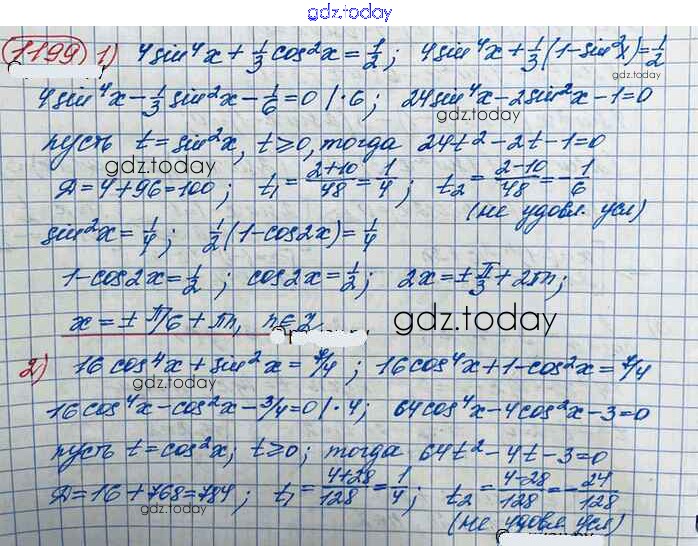 gdz.today
1199 1) 4sin⁴x + 1/3 cos²x = 1/2; 4sin⁴x + 1/3(1-sin²x) = 1/2
gdz.today
4sin⁴x - 1/3 sin²x - 1/6 = 0 |·6; 24sin⁴x - 2sin²x - 1 = 0
пусть t = sin²x, t ≥ 0, тогда 24t² - 2t - 1 = 0
gdz.today
Д = 4 + 96 = 100; t₁ = (2+10)/48 = 1/4; t₂ = (2-10)/48 = -1/6
(не удовл. усл)
sin²x = 1/4; 1/2(1-cos2x) = 1/4
1-cos2x = 1/2; cos2x = 1/2; 2x = ± π/3 + 2πn;
x = ± π/6 + πn, n ∈ Z
gdz.today
2) 16cos⁴x + sin²x = 7/4; 16cos⁴x + 1 - cos²x = 7/4
gdz.today gdz.today
16cos⁴x - cos²x - 3/4 = 0 |·4; 64cos⁴x - 4cos²x - 3 = 0
пусть t = cos²x; t ≥ 0; тогда 64t² - 4t - 3 = 0
Д = 16 + 768 = 784; t₁ = (4+28)/128 = 1/4; t₂ = (4-28)/128 = -24/128
gdz.today
(не удовл. усл)